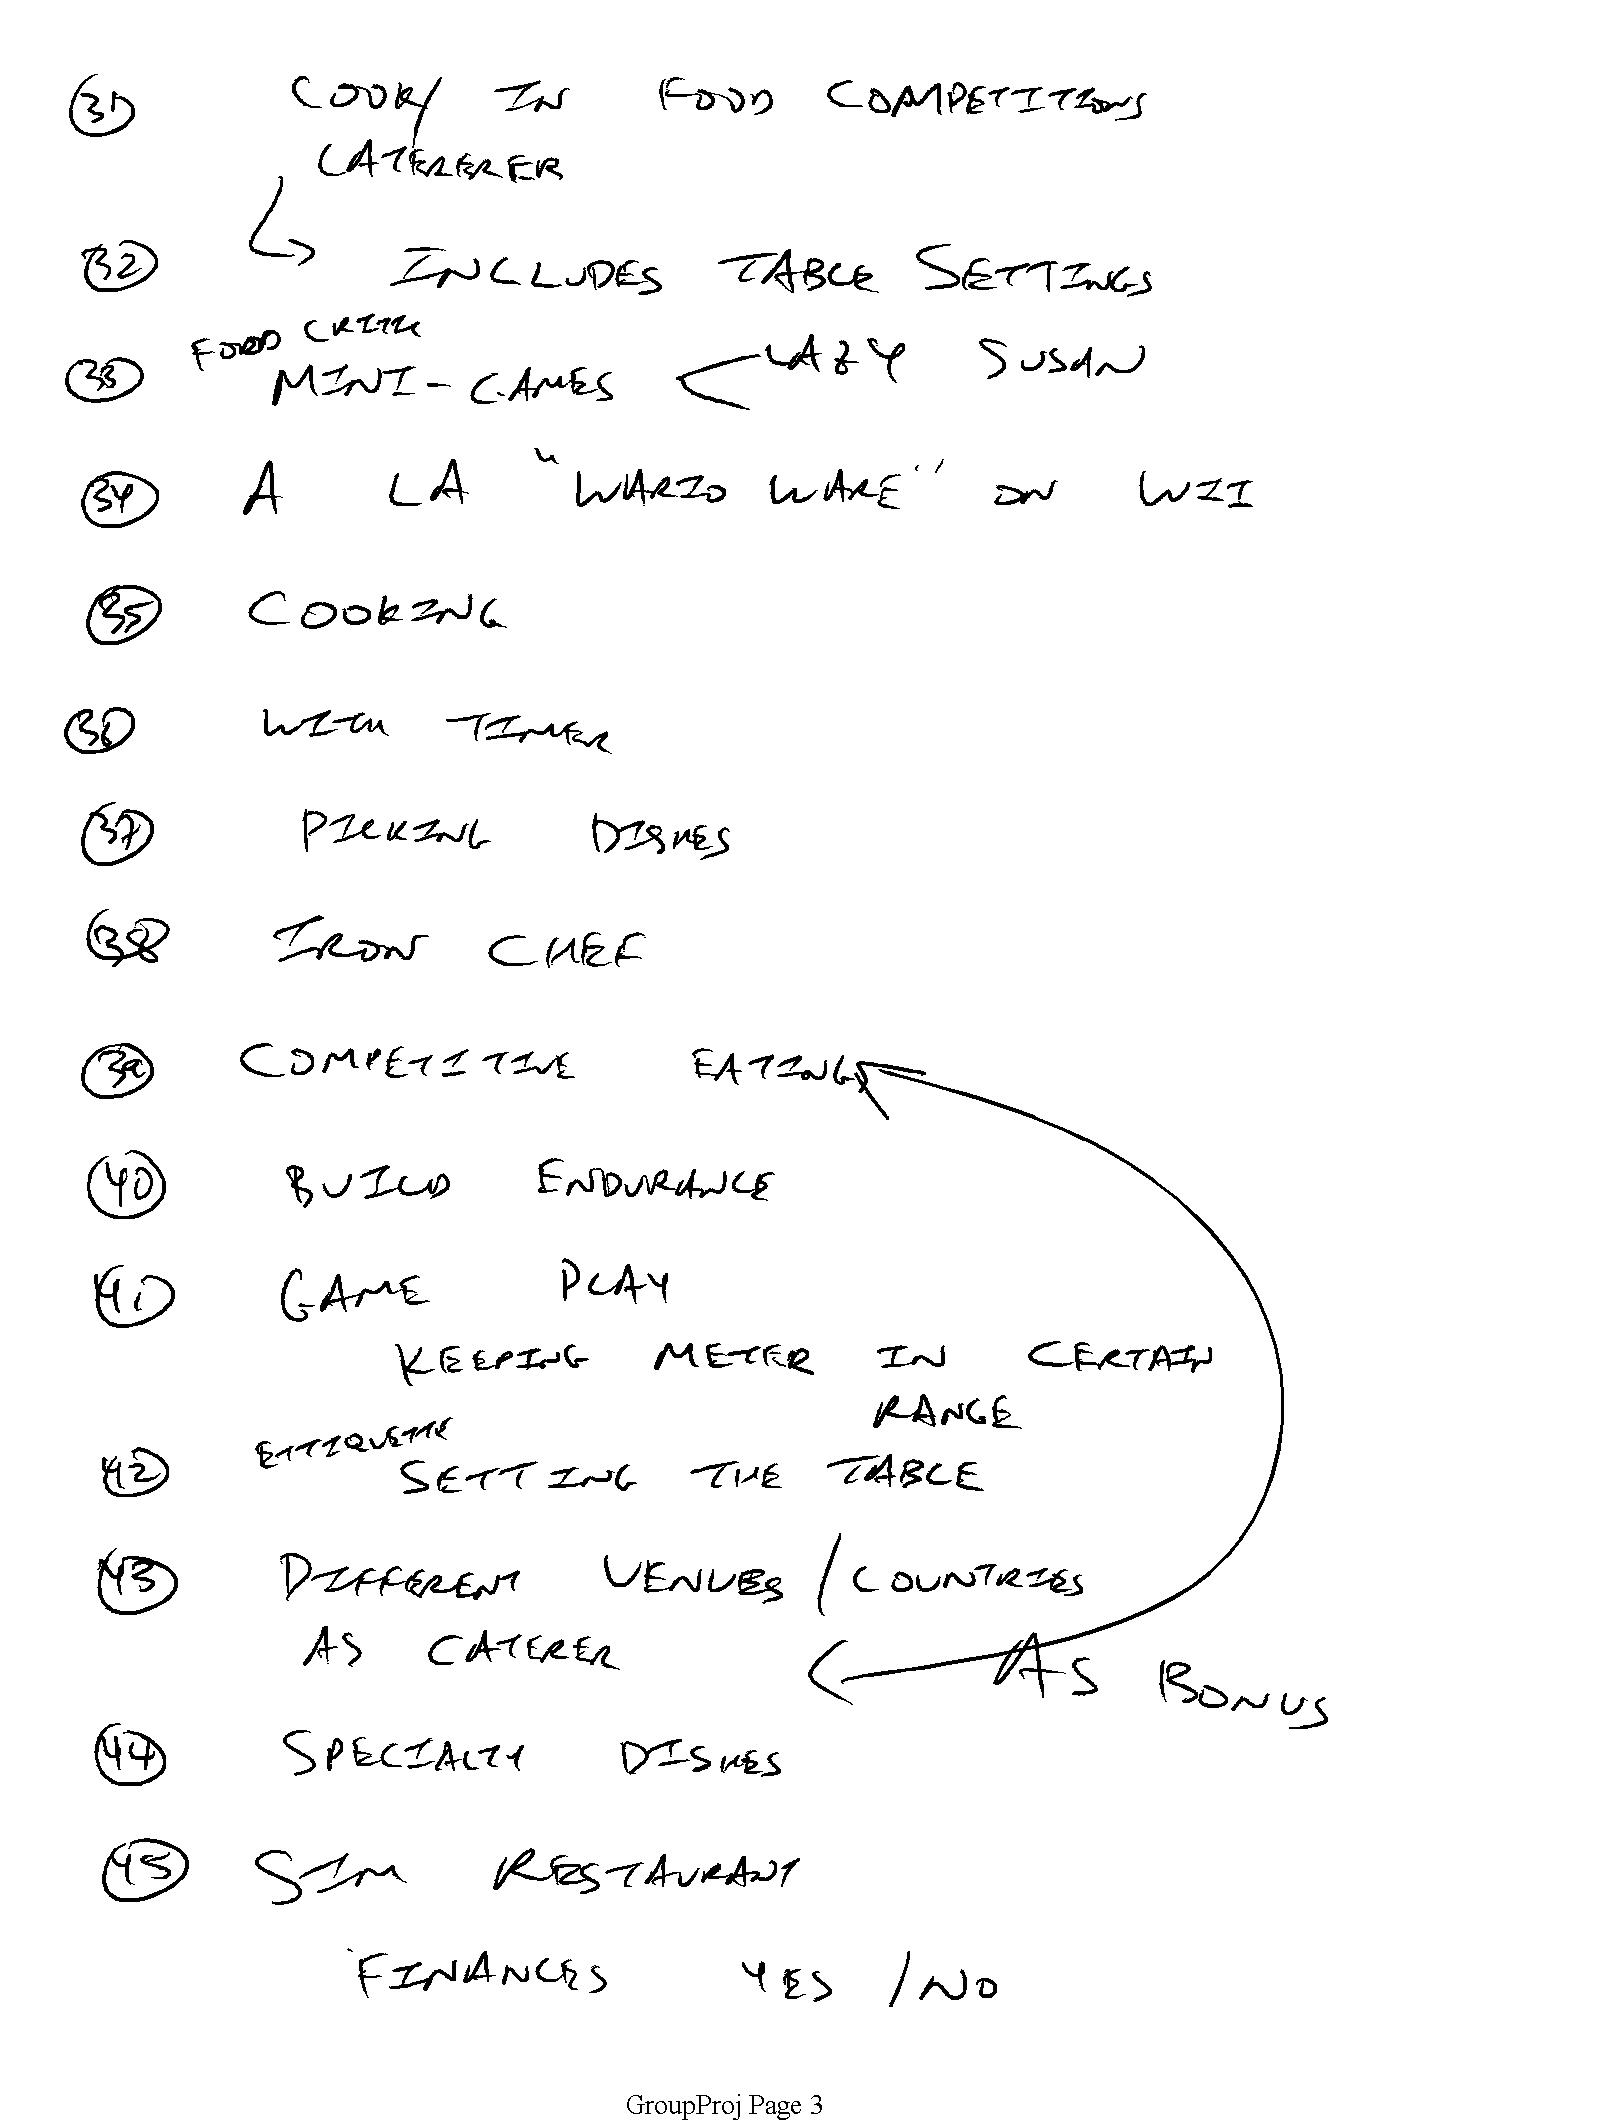 31 COOK/ IN FOOD COMPETITIONS
CATERERER
32 INCLUDES TABLE SETTINGS
FOOD CRITIC
33 MINI-GAMES LAZY SUSAN
34 A LA "WARIO WARE" ON WII
35 COOKING
36 WITH TIMER
37 PICKING DISHES
38 IRON CHEF
39 COMPETITIVE EATING
40 BUILD ENDURANCE
41 GAME PLAY
KEEPING METER IN CERTAIN
RANGE
ETTIQUETTE
42 SETTING THE TABLE
43 DIFFERENT VENUES / COUNTRIES
AS CATERER AS BONUS
44 SPECIALTY DISHES
45 SIM RESTAURANT
FINANCES YES / NO
GroupProj Page 3